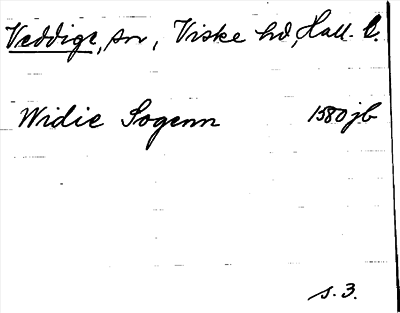 Veddige, sn, Viske hd, Hall. l.
Widie Sogenn 1580 jb
s. 3.